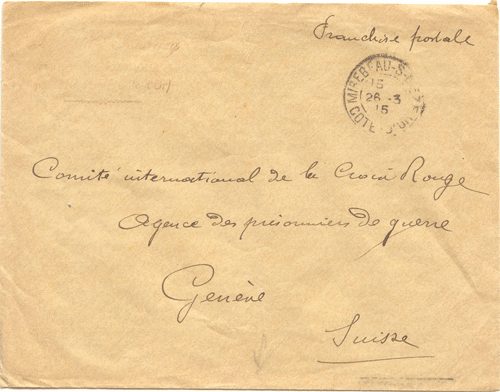 Franchise postale
MIREBEAU-S-BÈZE
15
26 -3
15
CÔTE-D'OR
Comité international de la Croix Rouge
Agence des prisonniers de guerre
Genève
Suisse